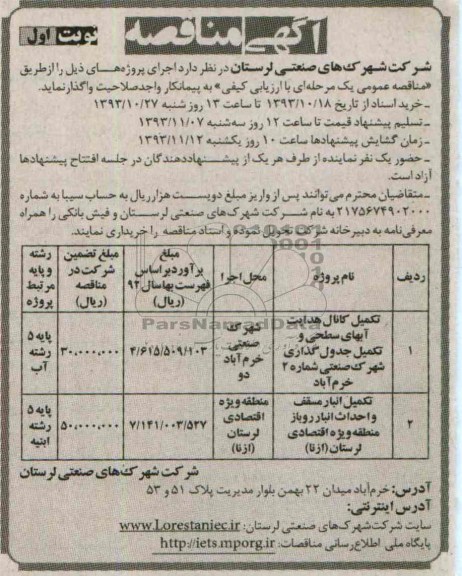 آگهی مناقصه
نوبت اول
شرکت شهرک‌های صنعتی لرستان در نظر دارد اجرای پروژه‌های ذیل را از طریق
«مناقصه عمومی یک مرحله‌ای با ارزیابی کیفی» به پیمانکار واجد صلاحیت واگذار نماید.
ـ خرید اسناد از تاریخ ۱۳۹۳/۱۰/۱۸ تا ساعت ۱۳ روز شنبه ۱۳۹۳/۱۰/۲۷
ـ تسلیم پیشنهاد قیمت تا ساعت ۱۲ روز سه‌شنبه ۱۳۹۳/۱۱/۰۷
ـ زمان گشایش پیشنهادها ساعت ۱۰ روز یکشنبه ۱۳۹۳/۱۱/۱۲
ـ حضور یک نفر نماینده از طرف هر یک از پیشنهاددهندگان در جلسه افتتاح پیشنهادها
آزاد است.
ـ متقاضیان محترم می‌توانند پس از واریز مبلغ دویست هزار ریال به حساب سیبا به شماره
۲۱۷۵۶۷۴۹۰۲۰۰۰ به نام شرکت شهرک‌های صنعتی لرستان و فیش بانکی را همراه
معرفی‌نامه به دبیرخانه شرکت تحویل نموده و اسناد مناقصه را خریداری نمایند.
ردیف | نام پروژه | محل اجرا | مبلغ برآورد بر اساس فهرست بها سال ۹۲ (ریال) | مبلغ تضمین شرکت در مناقصه (ریال) | رشته و پایه مرتبط پروژه
۱ | تکمیل کانال هدایت آبهای سطحی و تکمیل جدول‌گذاری شهرک صنعتی شماره ۲ خرم‌آباد | شهرک صنعتی خرم‌آباد دو | ۴/۶۱۵/۵۰۹/۱۰۳ | ۳۰,۰۰۰,۰۰۰ | پایه ۵ رشته آب
۲ | تکمیل انبار مسقف و احداث انبار روباز منطقه ویژه اقتصادی لرستان (ازنا) | منطقه ویژه اقتصادی لرستان (ازنا) | ۷/۱۴۱/۰۰۳/۵۲۷ | ۵۰,۰۰۰,۰۰۰ | پایه ۵ رشته ابنیه
شرکت شهرک‌های صنعتی لرستان
آدرس: خرم‌آباد میدان ۲۲ بهمن بلوار مدیریت پلاک ۵۱ و ۵۳
آدرس اینترنتی:
سایت شرکت شهرک‌های صنعتی لرستان: www.Lorestaniec.ir
پایگاه ملی اطلاع‌رسانی مناقصات: http://iets.mporg.ir
ParsNamadData